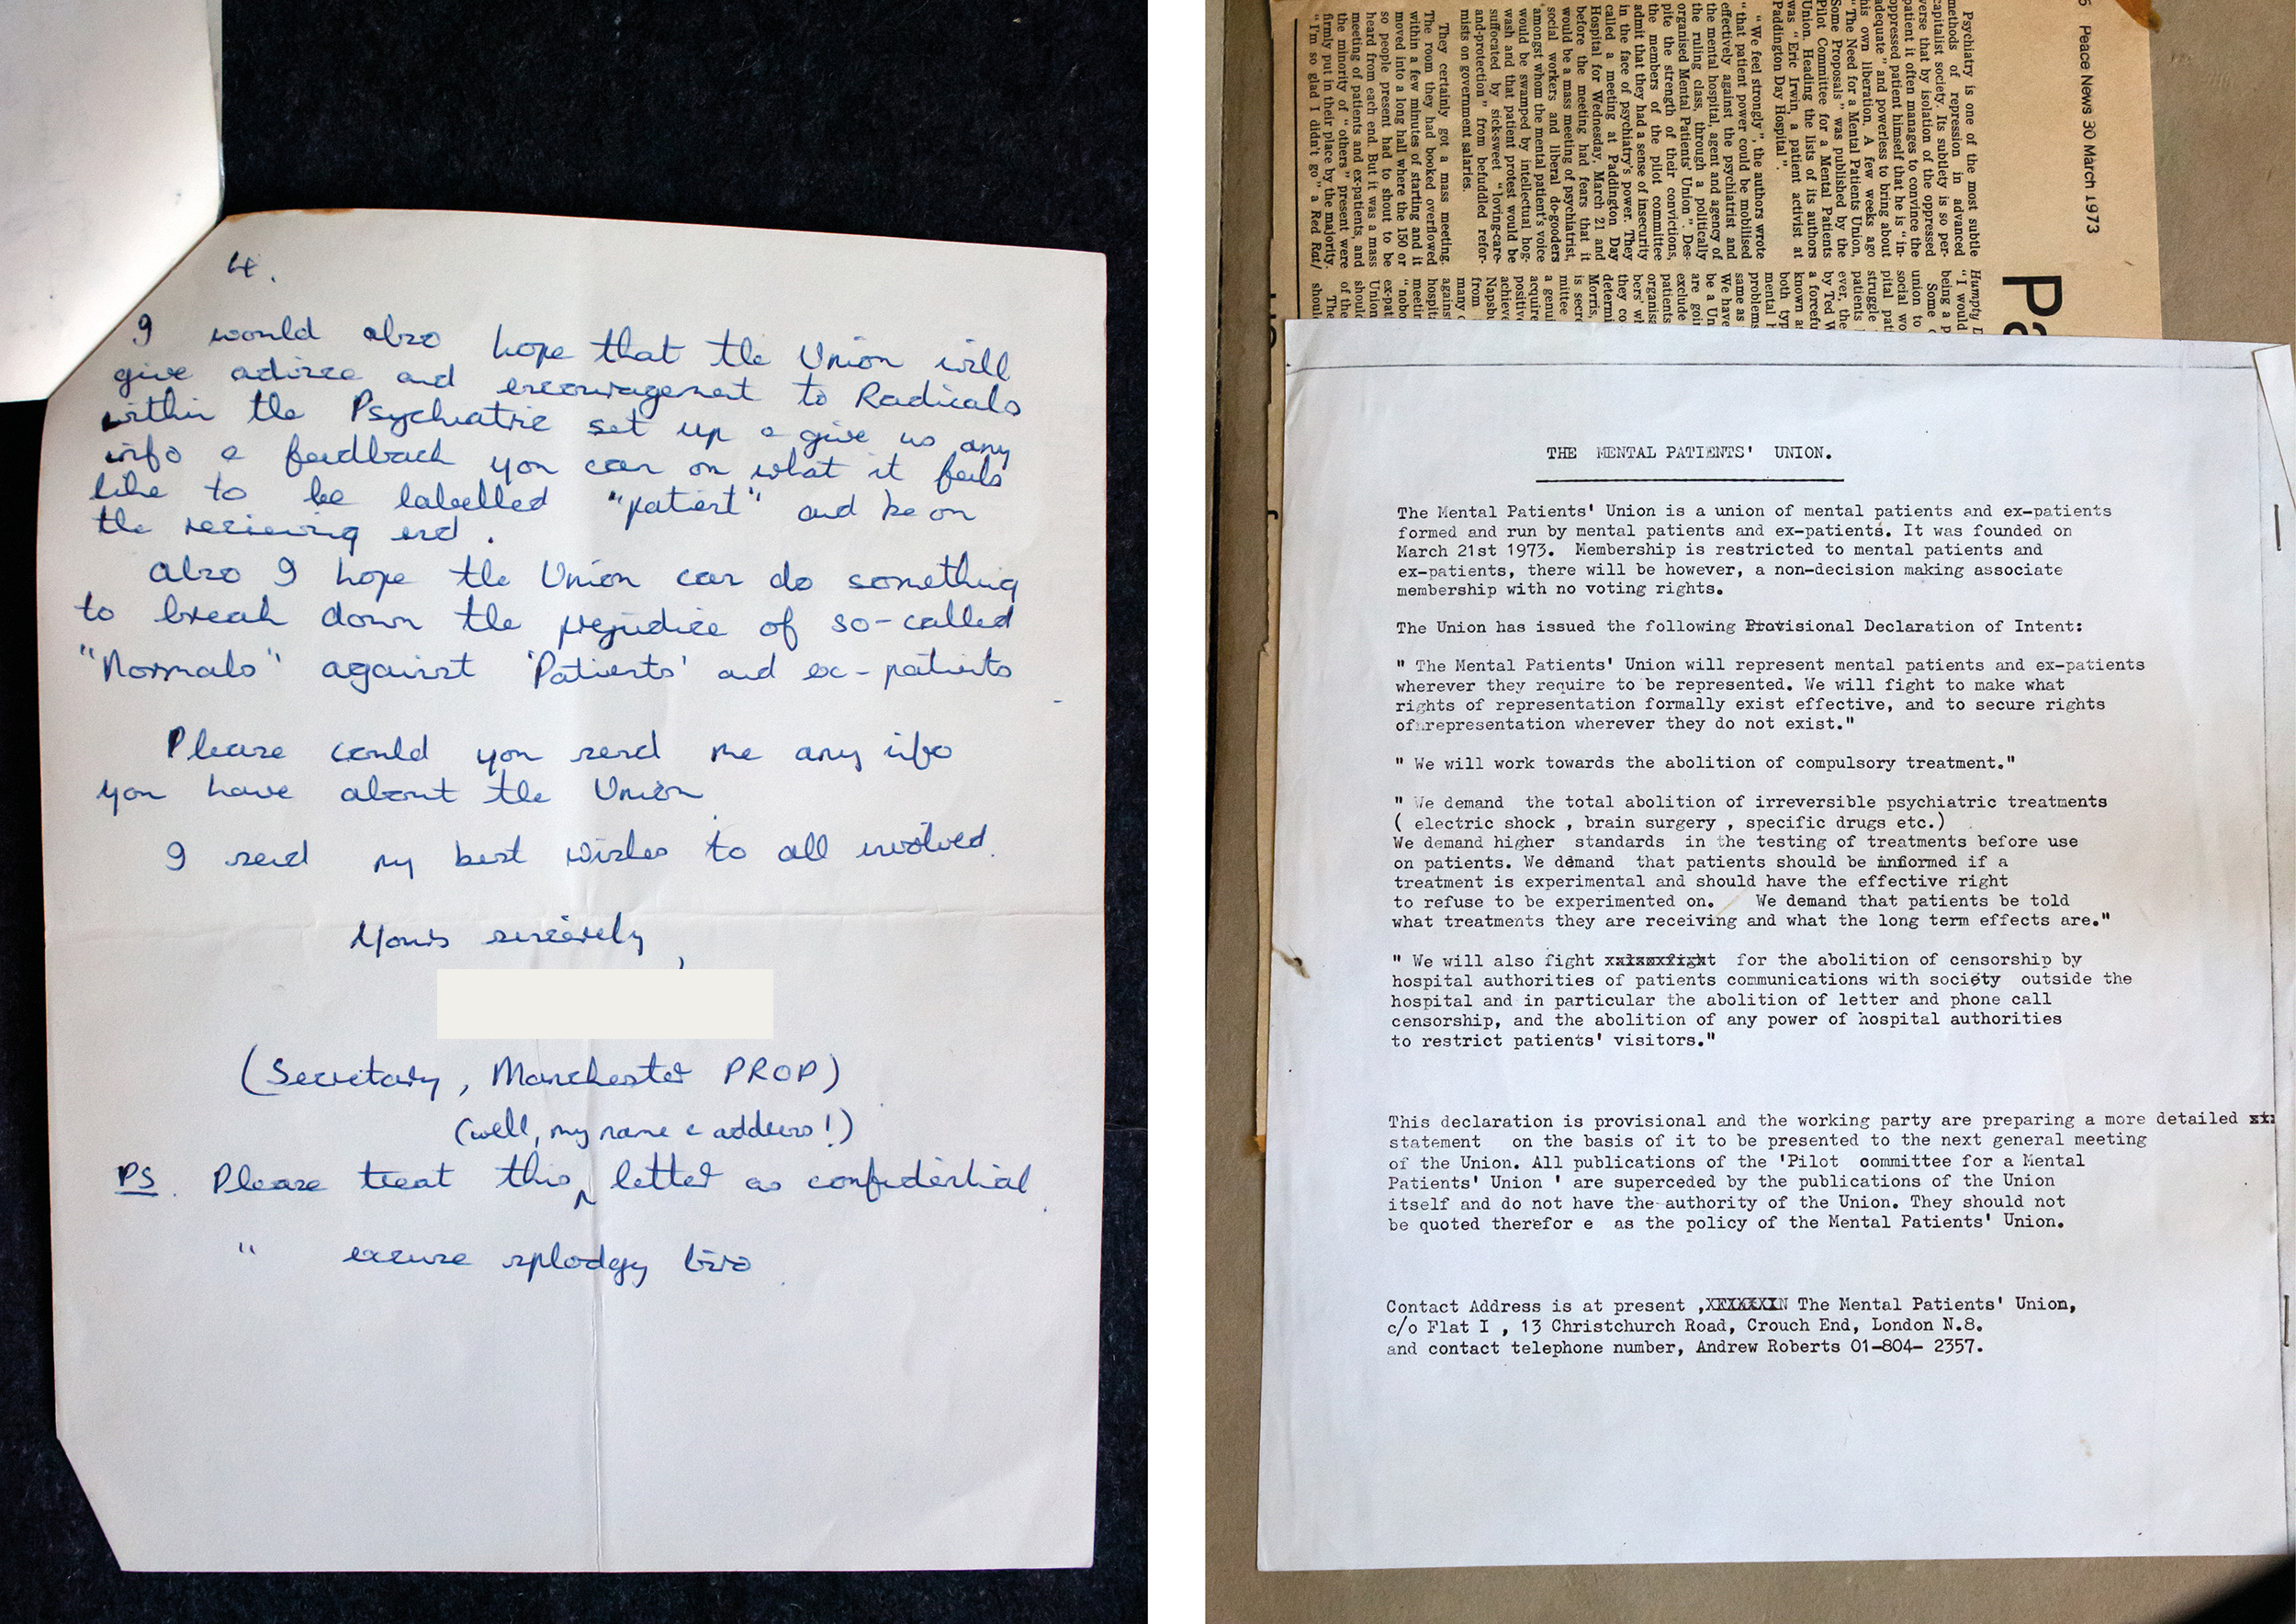 4.
I would also hope that the Union will
give advice and encouragement to Radicals
within the Psychiatric set up & give us any
info & feedback you can on what it feels
like to be labelled "patient" and be on
the recieving end.
Also I hope the Union can do something
to break down the prejudice of so-called
"Normals" against 'Patients' and ex-patients
Please could you send me any info
you have about the Union
I send my best wishes to all involved.
Yours sincerely,
(Secretary, Manchester PROP)
(well, my name & address!)
PS. Please treat this letter as confidential
" excuse splodgy biro
Peace News 30 March 1973
Pa
Psychiatry is one of the most subtle
methods of repression in advanced
capitalist society. Its subtlety is so per-
verse that by isolation of the oppressed
patient it often manages to convince the
oppressed patient himself that he is "in-
adequate" and powerless to bring about
his own liberation. A few weeks ago
"The Need for a Mental Patients Union,
Some Proposals" was published by the
Pilot Committee for a Mental Patients
Union. Heading the lists of its authors
was "Eric Irwin, a patient activist at
Paddington Day Hospital".
"We feel strongly", the authors wrote
"that patient power could be mobilised
effectively against the psychiatrist and
the mental hospital, agent and agency of
the ruling class, through a politically
organised Mental Patients' Union". Des-
pite the strength of their convictions,
the members of the pilot committee
admit that they had a sense of insecurity
in the face of psychiatry's power. They
called a meeting at Paddington Day
Hospital for Wednesday, March 21 and
before the meeting had fears that it
would be a mass meeting of psychiatrist,
social workers and liberal do-gooders
amongst whom the mental patient's voice
would be swamped by intellectual hog-
wash and that patient protest would be
suffocated by sick-sweet "loving-care-
and-protection" from befuddled refor-
mists on government salaries.
They certainly got a mass meeting.
The room they had booked overflowed
within a few minutes of starting and it
moved into a long hall where the 150 or
so people present had to shout to be
heard from each end. But it was a mass
meeting of patients and ex-patients, and
the minority of "others" present were
firmly put in their place by the majority.
"I'm so glad I didn't go" a Red Rat/
Humpty D
"I would
being a p
Some c
union to
social wo
pital pat
struggle
patients
ever, the
by Ted W
a forcefu
known as
both typ
mental h
problems
same as
We have
be a Un
are goi
exclude
patients
organisa
bers' wh
they co
determi
Morris,
is secre
mittee
a genui
acquire
positive
achieve
Napsbu
from
many c
against
hospita
meetin
"nobo
ex-pat
Union
should
of the
The
shoul
THE MENTAL PATIENTS' UNION.
The Mental Patients' Union is a union of mental patients and ex-patients
formed and run by mental patients and ex-patients. It was founded on
March 21st 1973. Membership is restricted to mental patients and
ex-patients, there will be however, a non-decision making associate
membership with no voting rights.
The Union has issued the following Provisional Declaration of Intent:
" The Mental Patients' Union will represent mental patients and ex-patients
wherever they require to be represented. We will fight to make what
rights of representation formally exist effective, and to secure rights
of representation wherever they do not exist."
" We will work towards the abolition of compulsory treatment."
" We demand the total abolition of irreversible psychiatric treatments
( electric shock , brain surgery , specific drugs etc.)
We demand higher standards in the testing of treatments before use
on patients. We demand that patients should be informed if a
treatment is experimental and should have the effective right
to refuse to be experimented on. We demand that patients be told
what treatments they are receiving and what the long term effects are."
" We will also fight for the abolition of censorship by
hospital authorities of patients communications with society outside the
hospital and in particular the abolition of letter and phone call
censorship, and the abolition of any power of hospital authorities
to restrict patients' visitors."
This declaration is provisional and the working party are preparing a more detailed
statement on the basis of it to be presented to the next general meeting
of the Union. All publications of the 'Pilot committee for a Mental
Patients' Union ' are superceded by the publications of the Union
itself and do not have the authority of the Union. They should not
be quoted therefor e as the policy of the Mental Patients' Union.
Contact Address is at present , The Mental Patients' Union,
c/o Flat I , 13 Christchurch Road, Crouch End, London N.8.
and contact telephone number, Andrew Roberts 01-804- 2357.